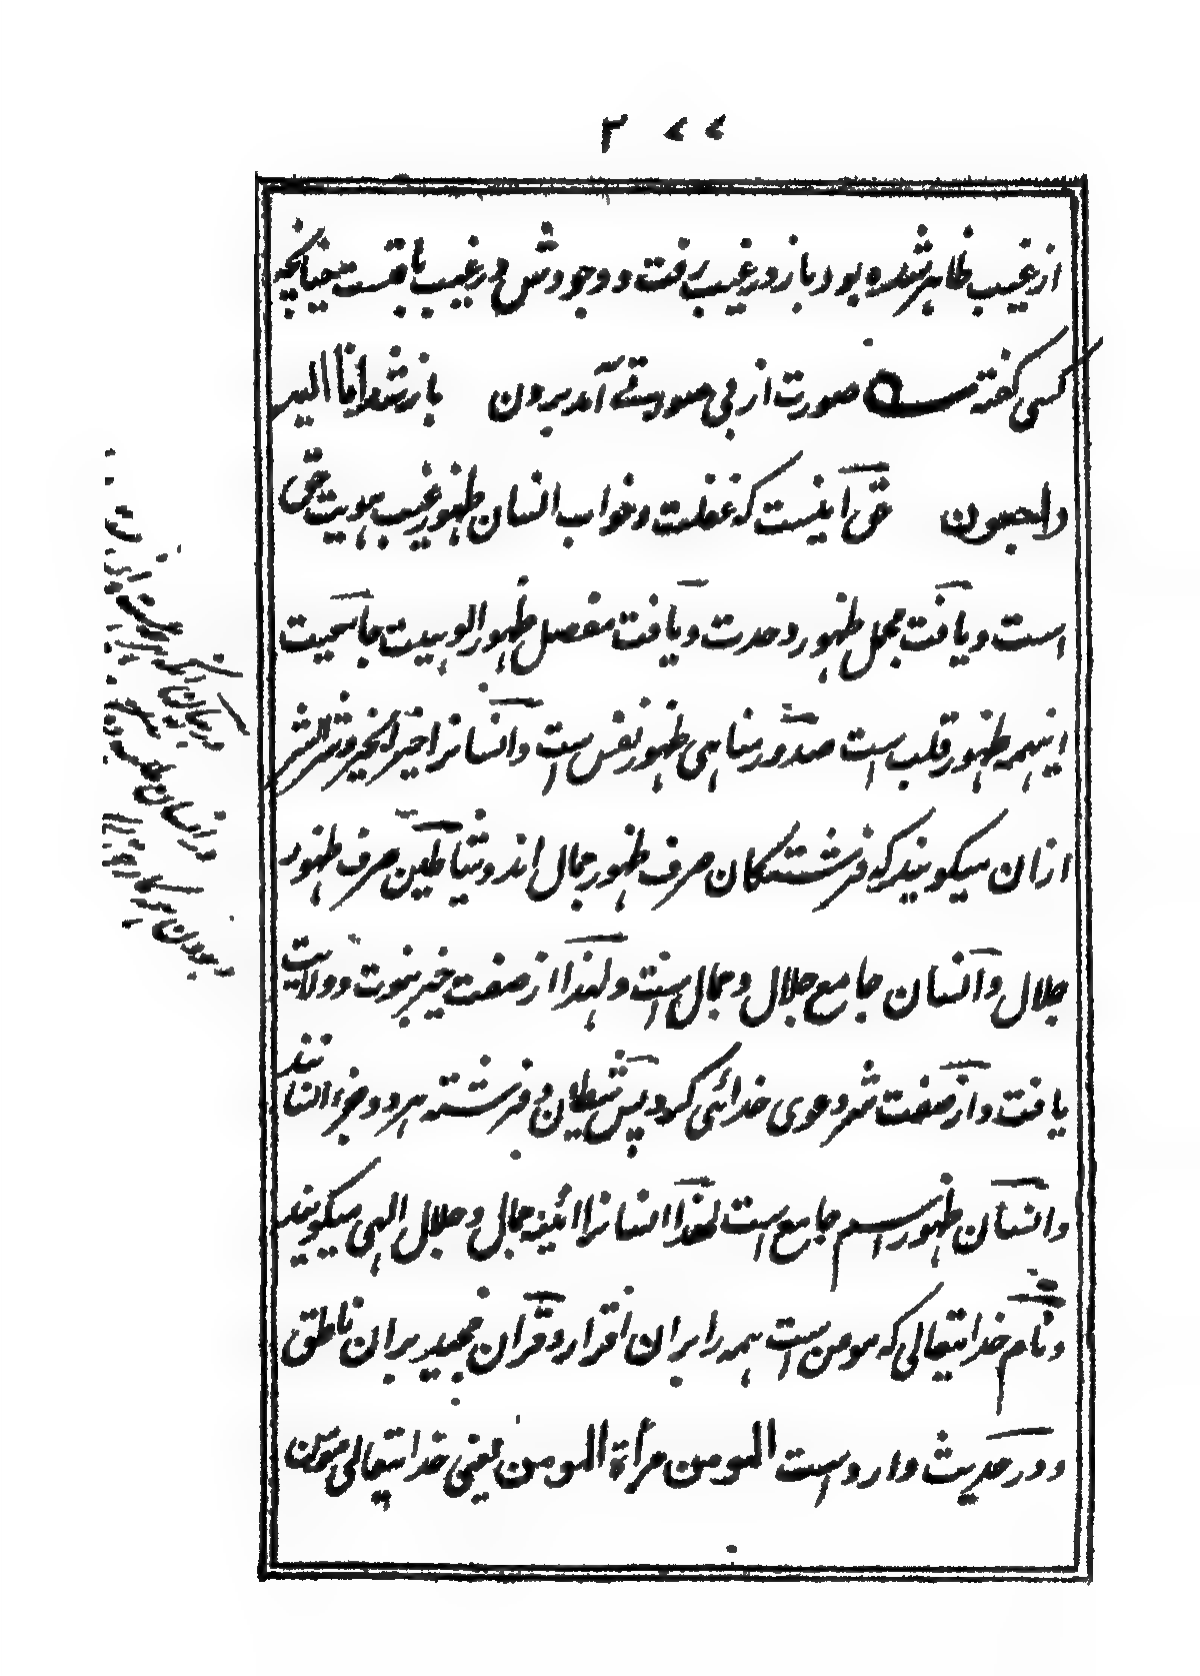 ۲۷۷
از غیب ظاهر شده بود باز در غیب رفت و وجودش در غیب یافتست چنانچه
کسی گفته صورت از بی صورتی آمد برون باز شد انا الیه
راجعون حق اینست که غفلت و خواب انسان ظهور غیب هویت حق
است و یافت مجمل ظهور وحدت و یافت مفصل ظهور الوهیت جامعیت
اینهمه ظهور قلب است صدور مناهی ظهور نفس است و انسانرا خیر الخیر و شر الشر
ازان میگویند که فرشتگان صرف ظهور جمال اند و شیاطین صرف ظهور
جلال و انسان جامع جلال و جمال است و لهذا از صفت خیر نبوت و ولایت
یافت و از صفت شر دعوی خدائی کرد پس شیطان و فرشته هر دو جزء انسانند
و انسان ظهور اسم جامع است لهذا انسانرا آئینه جمال و جلال الهی میگویند
و نام خدایتعالی که مومن است همه را بران اقرار و قرآن مجید بران ناطق
و در حدیث وارد است المومن مرأة المومن یعنی خدایتعالی مومن